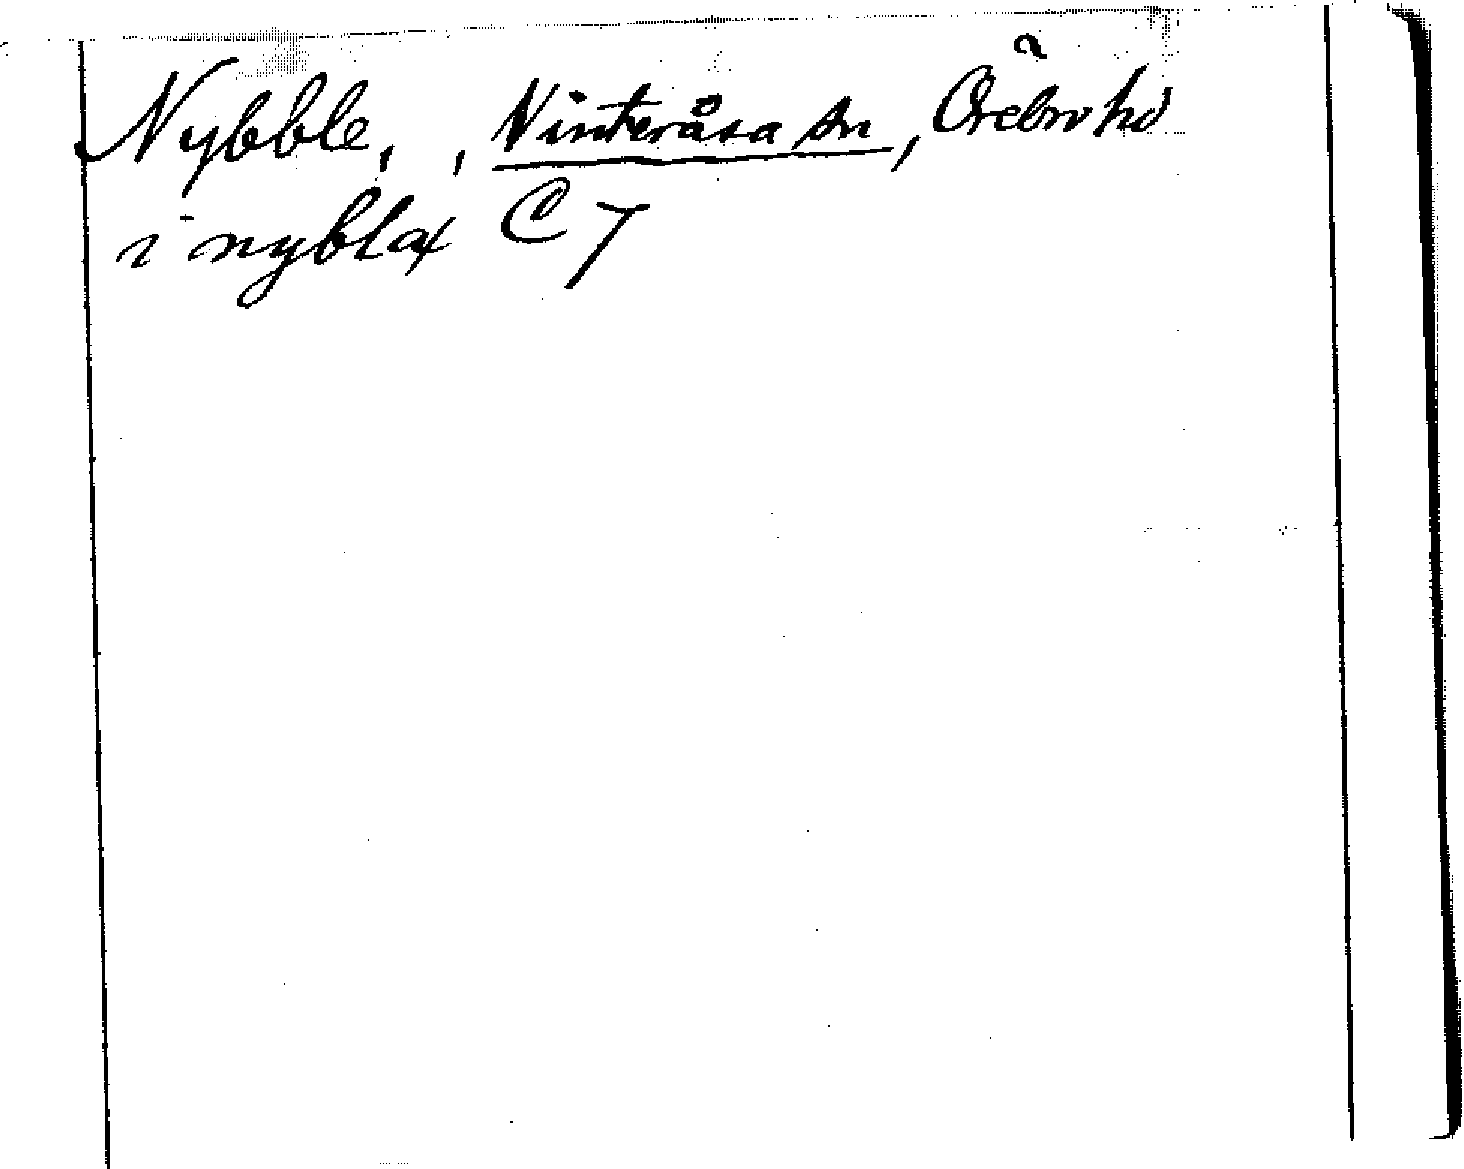 Nybble, , Vinteråsa sn, Örebro hd
i nyblax C 7